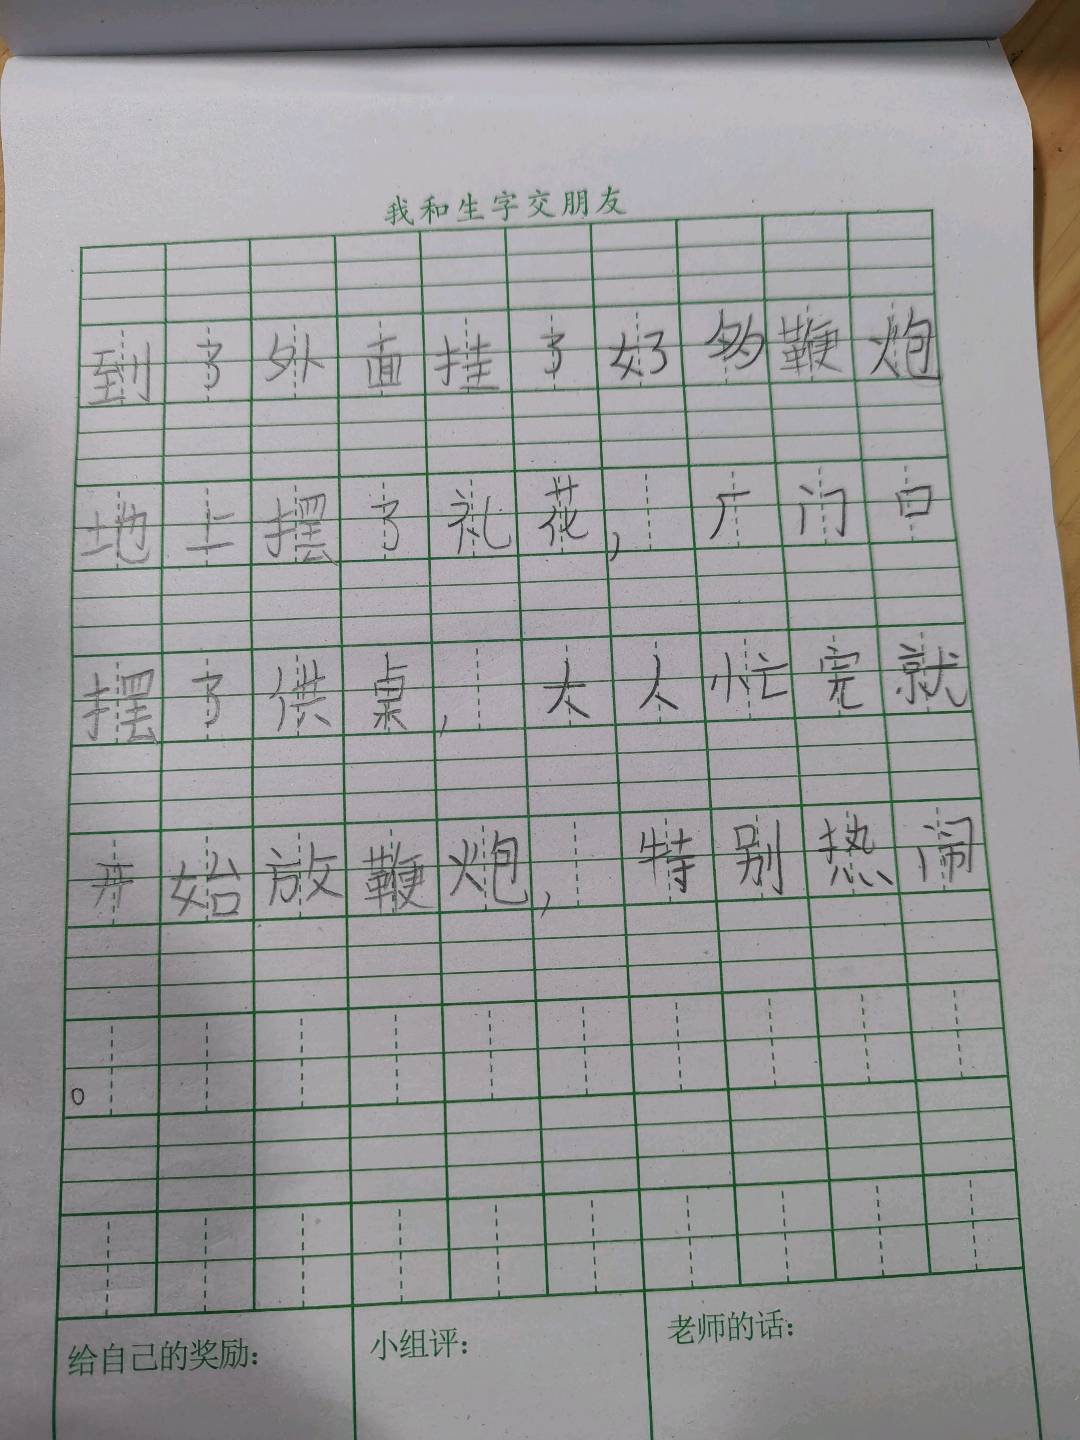 我和生字交朋友
到了外面挂了好多鞭炮
地上摆了礼花,广门口
摆了供桌,大人忙完就
开始放鞭炮,特别热闹
。
给自己的奖励:
小组评:
老师的话: